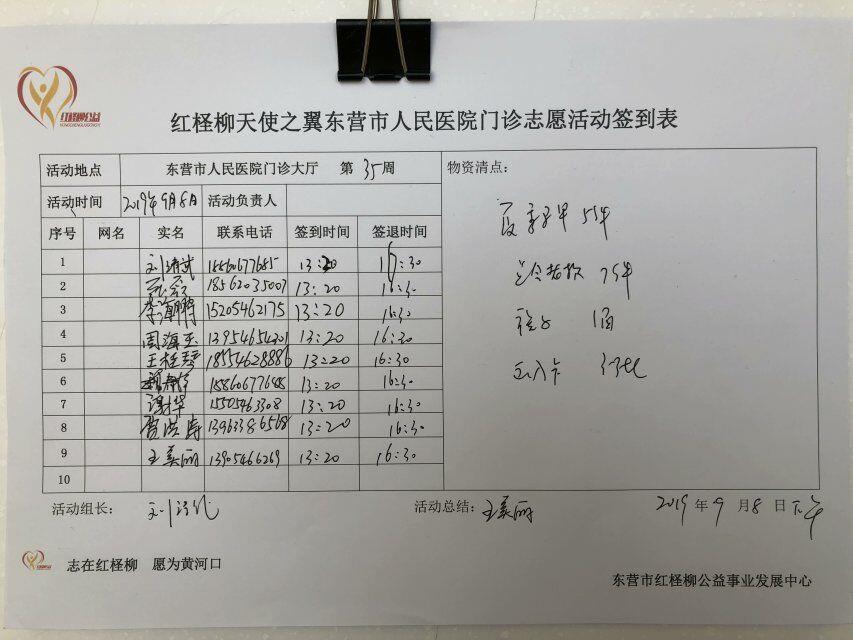 红柽柳公益
HONGCHENGLIUGONGYI
红柽柳天使之翼东营市人民医院门诊志愿活动签到表
活动地点 东营市人民医院门诊大厅 第35周
活动时间 2019年9月8日 活动负责人
序号 网名 实名 联系电话 签到时间 签退时间
1 13:20 16:30
2 18562035007 13:20 16:30
3 李海鹏 15205462175 13:20 16:30
4 周海玉 13954654301 13:20 16:30
5 王桂琴 18554628886 13:20 16:30
6 13:20 16:30
7 谢华 15505463308 13:20 16:30
8 贺洪涛 13963386568 13:20 16:30
9 王美丽 13905466269 13:20 16:30
10
物资清点:
夏季马甲 5件
7件
1面
活动组长:
活动总结: 王美丽
2019年9月8日下午
志在红柽柳 愿为黄河口
东营市红柽柳公益事业发展中心